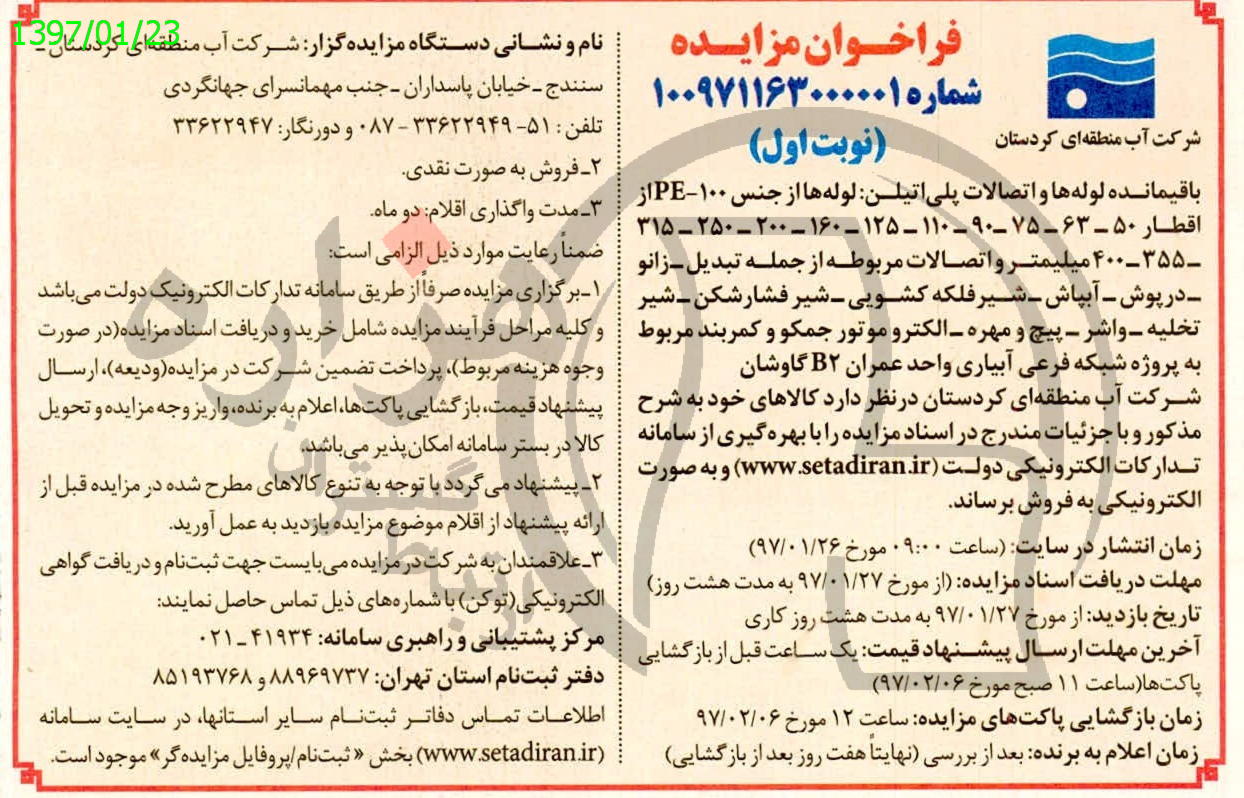 1397/01/23
شرکت آب منطقه‌ای کردستان
فراخـوان مزایـده
شماره ۱۰۰۹۷۱۱۶۳۰۰۰۰۰۱
(نوبت اول)
باقیمانده لوله‌ها و اتصالات پلی‌اتیلن: لوله‌ها از جنس PE-۱۰۰ از
اقطار ۵۰ ـ ۶۳ ـ ۷۵ ـ ۹۰ ـ ۱۱۰ ـ ۱۲۵ ـ ۱۶۰ ـ ۲۰۰ ـ ۲۵۰ ـ ۳۱۵
ـ ۳۵۵ ـ ۴۰۰ میلیمتر و اتصالات مربوطه از جمله تبدیل ـ زانو
ـ درپوش ـ آبپاش ـ شیرفلکه کشویی ـ شیر فشارشکن ـ شیر
تخلیه ـ واشر ـ پیچ و مهره ـ الکترو موتور جمکو و کمربند مربوط
به پروژه شبکه فرعی آبیاری واحد عمران B۲ گاوشان
شرکت آب منطقه‌ای کردستان درنظر دارد کالاهای خود به شرح
مذکور و با جزئیات مندرج در اسناد مزایده را با بهره‌گیری از سامانه
تدارکات الکترونیکی دولت (www.setadiran.ir) و به صورت
الکترونیکی به فروش برساند.
زمان انتشار در سایت: (ساعت ۰۹:۰۰ مورخ ۹۷/۰۱/۲۶)
مهلت دریافت اسناد مزایده: (از مورخ ۹۷/۰۱/۲۷ به مدت هشت روز)
تاریخ بازدید: از مورخ ۹۷/۰۱/۲۷ به مدت هشت روز کاری
آخرین مهلت ارسال پیشنهاد قیمت: یک ساعت قبل از بازگشایی
پاکت‌ها(ساعت ۱۱ صبح مورخ ۹۷/۰۲/۰۶)
زمان بازگشایی پاکت‌های مزایده: ساعت ۱۲ مورخ ۹۷/۰۲/۰۶
زمان اعلام به برنده: بعد از بررسی (نهایتاً هفت روز بعد از بازگشایی)
نام و نشانی دستگاه مزایده‌گزار: شرکت آب منطقه‌ای کردستان ـ
سنندج ـ خیابان پاسداران ـ جنب مهمانسرای جهانگردی
تلفن : ۵۱- ۳۳۶۲۲۹۴۹ - ۰۸۷ و دورنگار: ۳۳۶۲۲۹۴۷
۲ـ فروش به صورت نقدی.
۳ـ مدت واگذاری اقلام: دو ماه.
ضمناً رعایت موارد ذیل الزامی است:
۱ـ برگزاری مزایده صرفاً از طریق سامانه تدارکات الکترونیک دولت می‌باشد
و کلیه مراحل فرآیند مزایده شامل خرید و دریافت اسناد مزایده(در صورت
وجوه هزینه مربوط)، پرداخت تضمین شرکت در مزایده(ودیعه)، ارسال
پیشنهاد قیمت، بازگشایی پاکت‌ها، اعلام به برنده، واریز وجه مزایده و تحویل
کالا در بستر سامانه امکان‌پذیر می‌باشد.
۲ـ پیشنهاد می‌گردد با توجه به تنوع کالاهای مطرح شده در مزایده قبل از
ارائه پیشنهاد از اقلام موضوع مزایده بازدید به عمل آورید.
۳ـ علاقمندان به شرکت در مزایده می‌بایست جهت ثبت‌نام و دریافت گواهی
الکترونیکی(توکن) با شماره‌های ذیل تماس حاصل نمایند:
مرکز پشتیبانی و راهبری سامانه: ۴۱۹۳۴ ـ ۰۲۱
دفتر ثبت‌نام استان تهران: ۸۸۹۶۹۷۳۷ و ۸۵۱۹۳۷۶۸
اطلاعات تماس دفاتر ثبت‌نام سایر استانها، در سایت سامانه
(www.setadiran.ir) بخش «ثبت‌نام/پروفایل مزایده‌گر» موجود است.
هزاره
ارتباط گستران